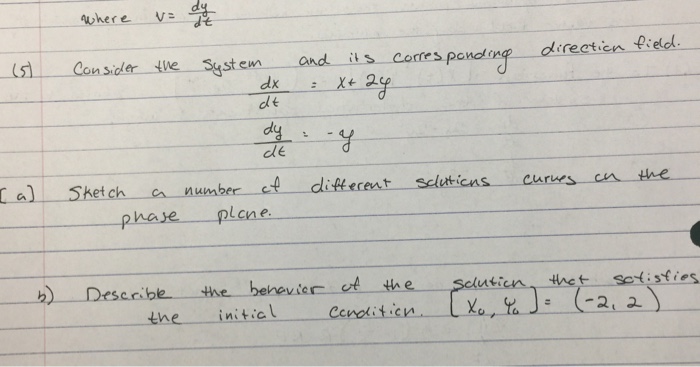 where v = dy/dt
(5) Consider the system and its corresponding direction field.
dx/dt = x + 2y
dy/dt = -y
[a] Sketch a number of different solutions curves on the
phase plane.
b) Describe the behavior of the solution that satisfies
the initial condition. [x₀, y₀] = (-2, 2)